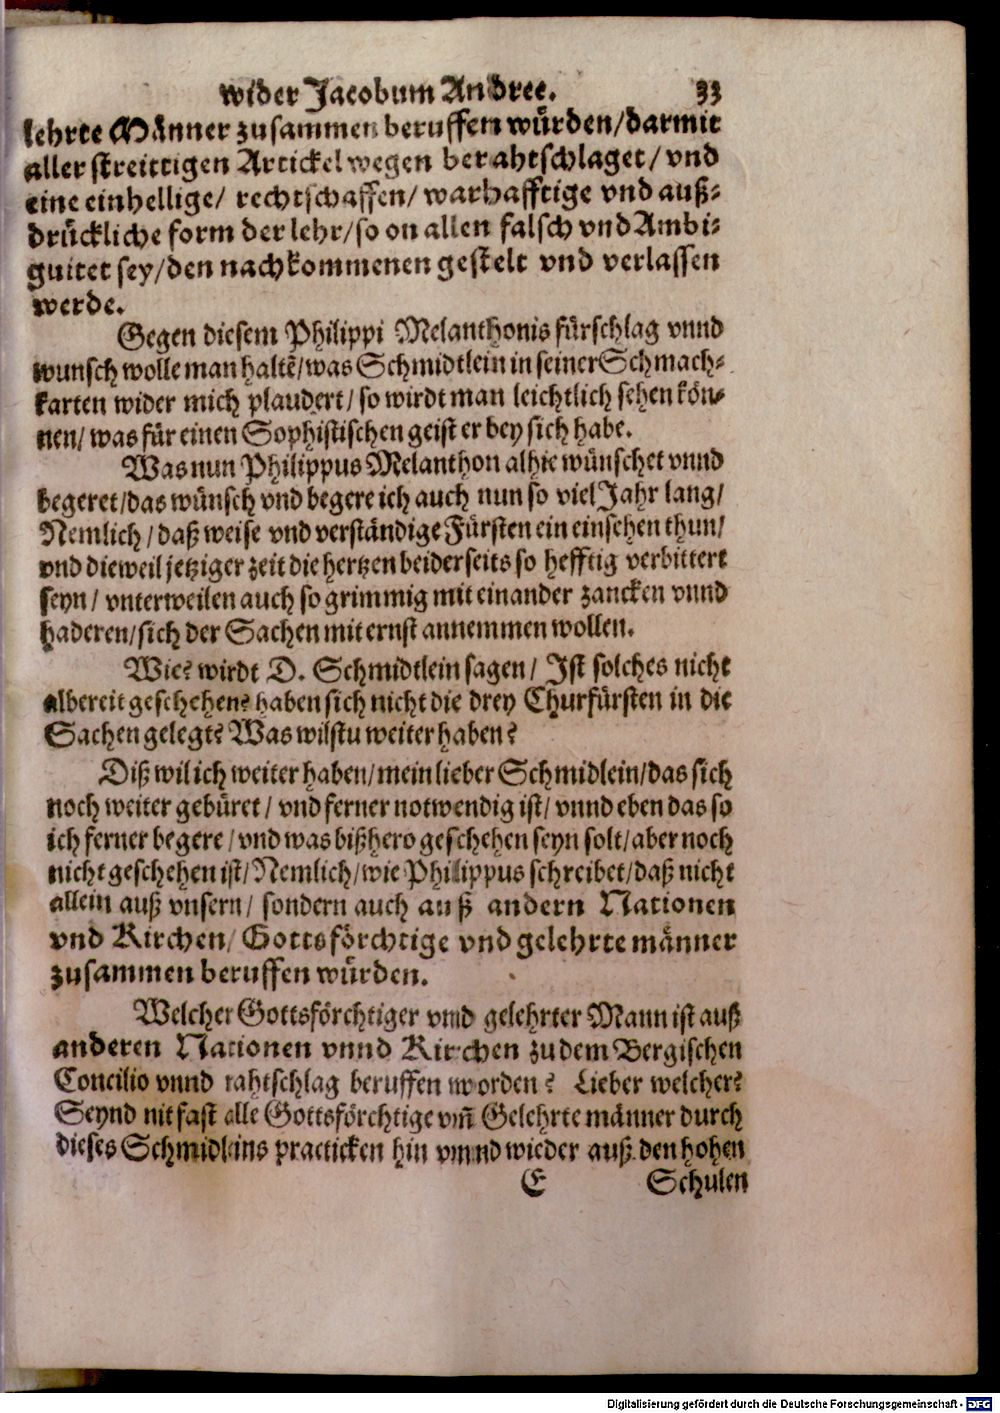 wider Jacobum Andree. 33
lehrte Männer zusammen beruffen würden/darmit
aller streittigen Artickel wegen berahtschlaget/ vnd
eine einhellige/ rechtschaffen/ warhafftige vnd auß-
drückliche form der lehr/so on allen falsch vnd Ambi-
guitet sey/den nachkommenen gestelt vnd verlassen
werde.
Gegen diesem Philippi Melanthonis fürschlag vnnd
wunsch wolle man haltē/was Schmidtlein in seiner Schmach-
karten wider mich plaudert/ so wirdt man leichtlich sehen kön-
nen/ was für einen Sophistischen geist er bey sich habe.
Was nun Philippus Melanthon alhie wünschet vnnd
begeret/das wünsch vnd begere ich auch nun so viel Jahr lang/
Nemlich/daß weise vnd verständige Fürsten ein einsehen thun/
vnd dieweil jetziger zeit die hertzen beiderseits so hefftig verbittert
seyn/ vnterweilen auch so grimmig mit einander zancken vnnd
haderen/sich der Sachen mit ernst annemmen wollen.
Wie? wirdt D. Schmidtlein sagen/ Ist solches nicht
albereit geschehen? haben sich nicht die drey Churfürsten in die
Sachen gelegt? Was wilstu weiter haben?
Diß wil ich weiter haben/mein lieber Schmidlein/das sich
noch weiter gebüret/ vnd ferner notwendig ist/ vnnd eben das so
ich ferner begere/vnd was bißhero geschehen seyn solt/aber noch
nicht geschehen ist/Nemlich/wie Philippus schreibet/daß nicht
allein auß vnsern/ sondern auch auß andern Nationen
vnd Kirchen/ Gottsförchtige vnd gelehrte männer
zusammen beruffen würden.
Welcher Gottsförchtiger vnnd gelehrter Mann ist auß
anderen Nationen vnnd Kirchen zu dem Bergischen
Concilio vnnd rahtschlag beruffen worden? Lieber welcher?
Seynd nit fast alle Gottsförchtige vñ Gelehrte männer durch
dieses Schmidleins practicken hin vnnd wieder auß den hohen
E Schulen
Digitalisierung gefördert durch die Deutsche Forschungsgemeinschaft - DFG